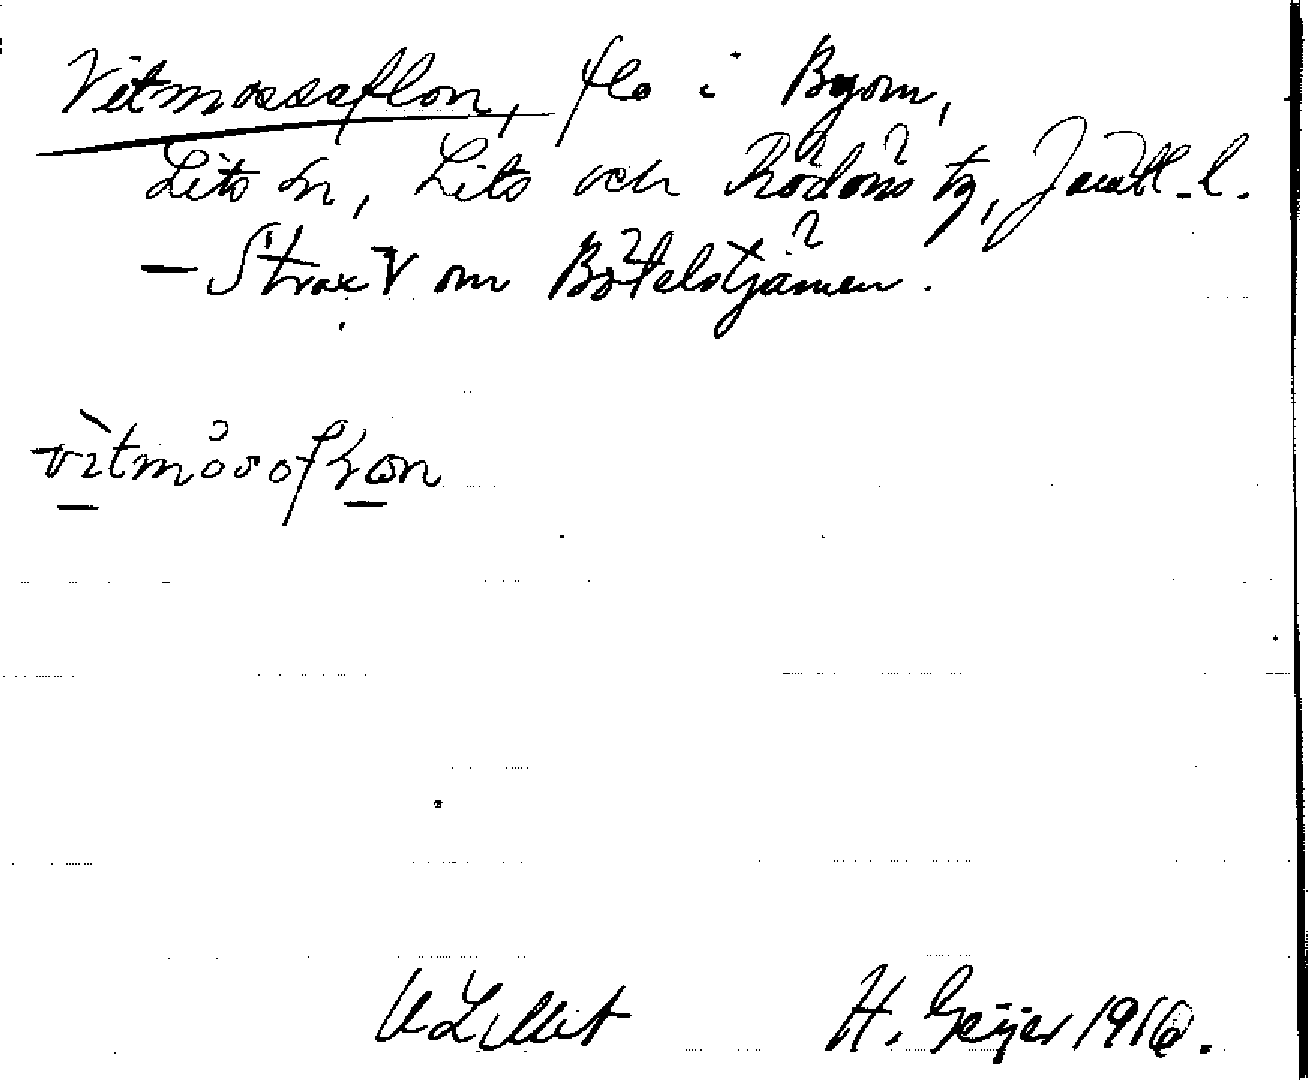 Vitmossaflon, flo i Byom,
Lits sn, Lits och Rödöns tg, Jämtl. l.
– Strax V om Bötelstjärnen.
H. Geijer 1916.